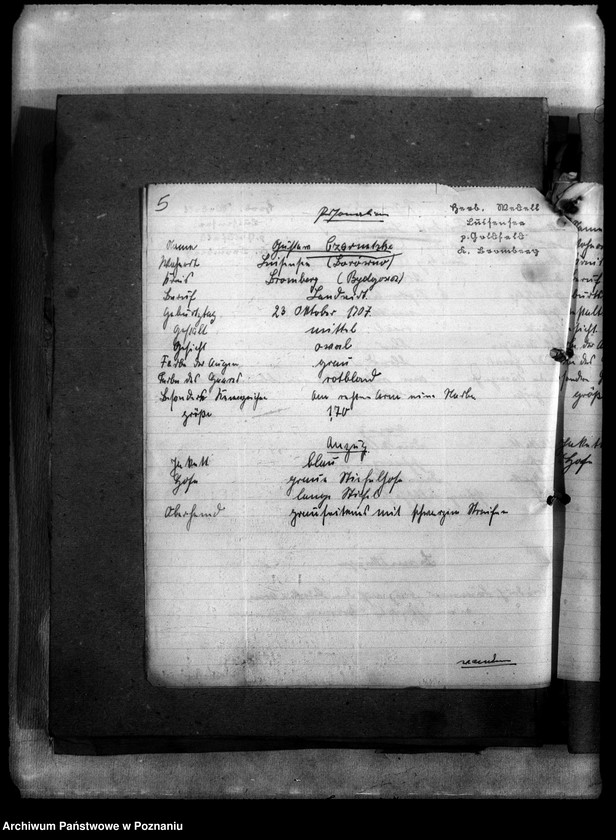 5
Personalien
Herb. Wedell
Luisensee
p. Goldfeld
K. Bromberg
Name Gustav Czarnetzke
Wohnort Luisensee (Borówno)
Kreis Bromberg (Bydgoszcz)
Beruf Landwirt
Geburtstag 23 Oktober 1907.
Gestalt mittel
Gesicht oval
Farbe der Augen grau
Farbe des Haares rotblond
Besonders Kennzeichen am rechten Arm eine Narbe
größe 1,70
Anzug
Jackett blau
Hose graue Stiefelhose
lange Stiefel
Oberhemd grauseidenes mit schwarzen Streifen
wenden
Archiwum Państwowe w Poznaniu